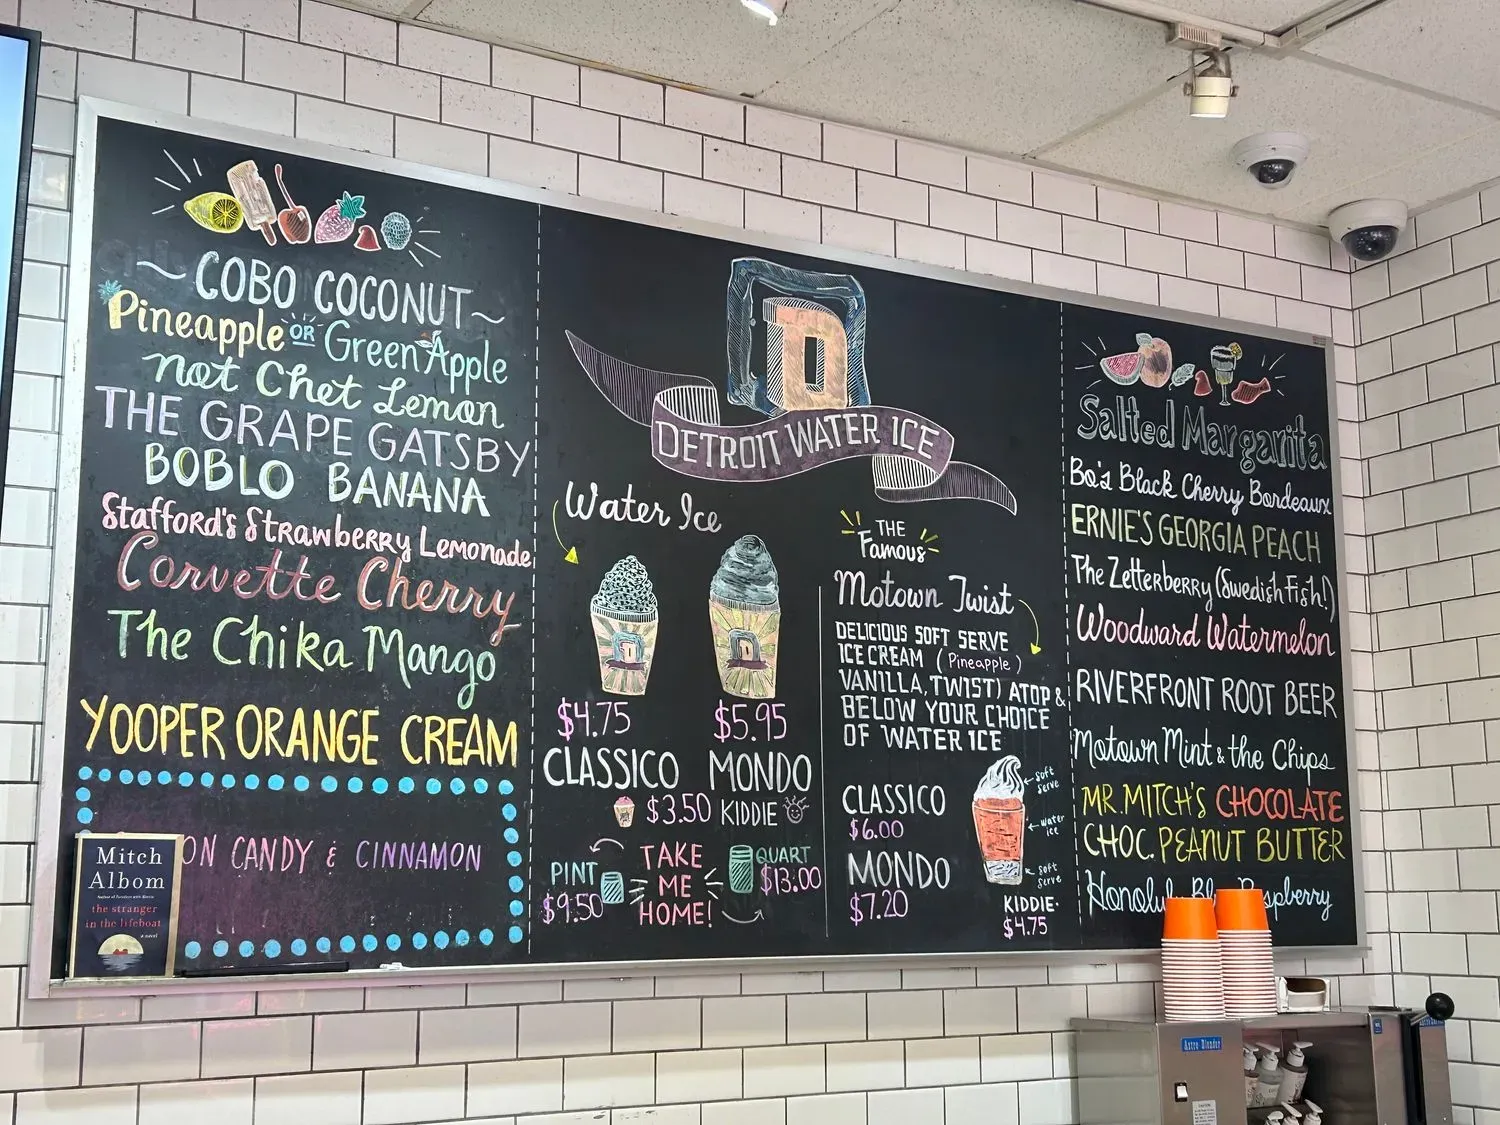 ~ COBO COCONUT ~
Pineapple OR Green Apple
not Chet Lemon
THE GRAPE GATSBY
BOBLO BANANA
Stafford's Strawberry Lemonade
Corvette Cherry
The Chika Mango
YOOPER ORANGE CREAM
ON CANDY & CINNAMON
Mitch
Albom
the stranger
in the lifeboat
a novel
D
DETROIT WATER ICE
Water Ice
$4.75
CLASSICO
$5.95
MONDO
$3.50 KIDDIE
PINT
$9.50
TAKE
ME
HOME!
QUART
$13.00
THE
Famous
Motown Twist
DELICIOUS SOFT SERVE
ICE CREAM (Pineapple)
VANILLA, TWIST) ATOP &
BELOW YOUR CHOICE
OF WATER ICE
CLASSICO
$6.00
MONDO
$7.20
soft
serve
water
ice
soft
serve
KIDDIE.
$4.75
Salted Margarita
Bo's Black Cherry Bordeaux
ERNIE'S GEORGIA PEACH
The Zetterberry (Swedish Fish!)
Woodward Watermelon
RIVERFRONT ROOT BEER
Motown Mint & the Chips
MR. MITCH'S CHOCOLATE
CHOC. PEANUT BUTTER
Honolu Bl spberry
Astro Blender